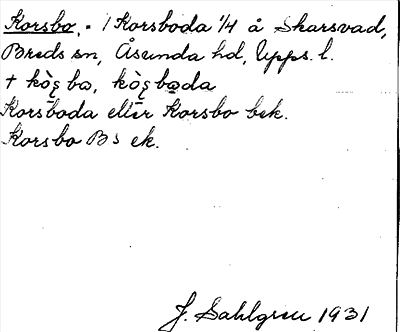 Korsbo, - / Korsboda 1/4 å Skarsvad,
Breds sn, Åsunda hd, Upps. l.
+ kòʂbo, kòʂboda
Korsboda eller Korsbo bek.
Korsbo Bs ek.
J. Sahlgren 1931